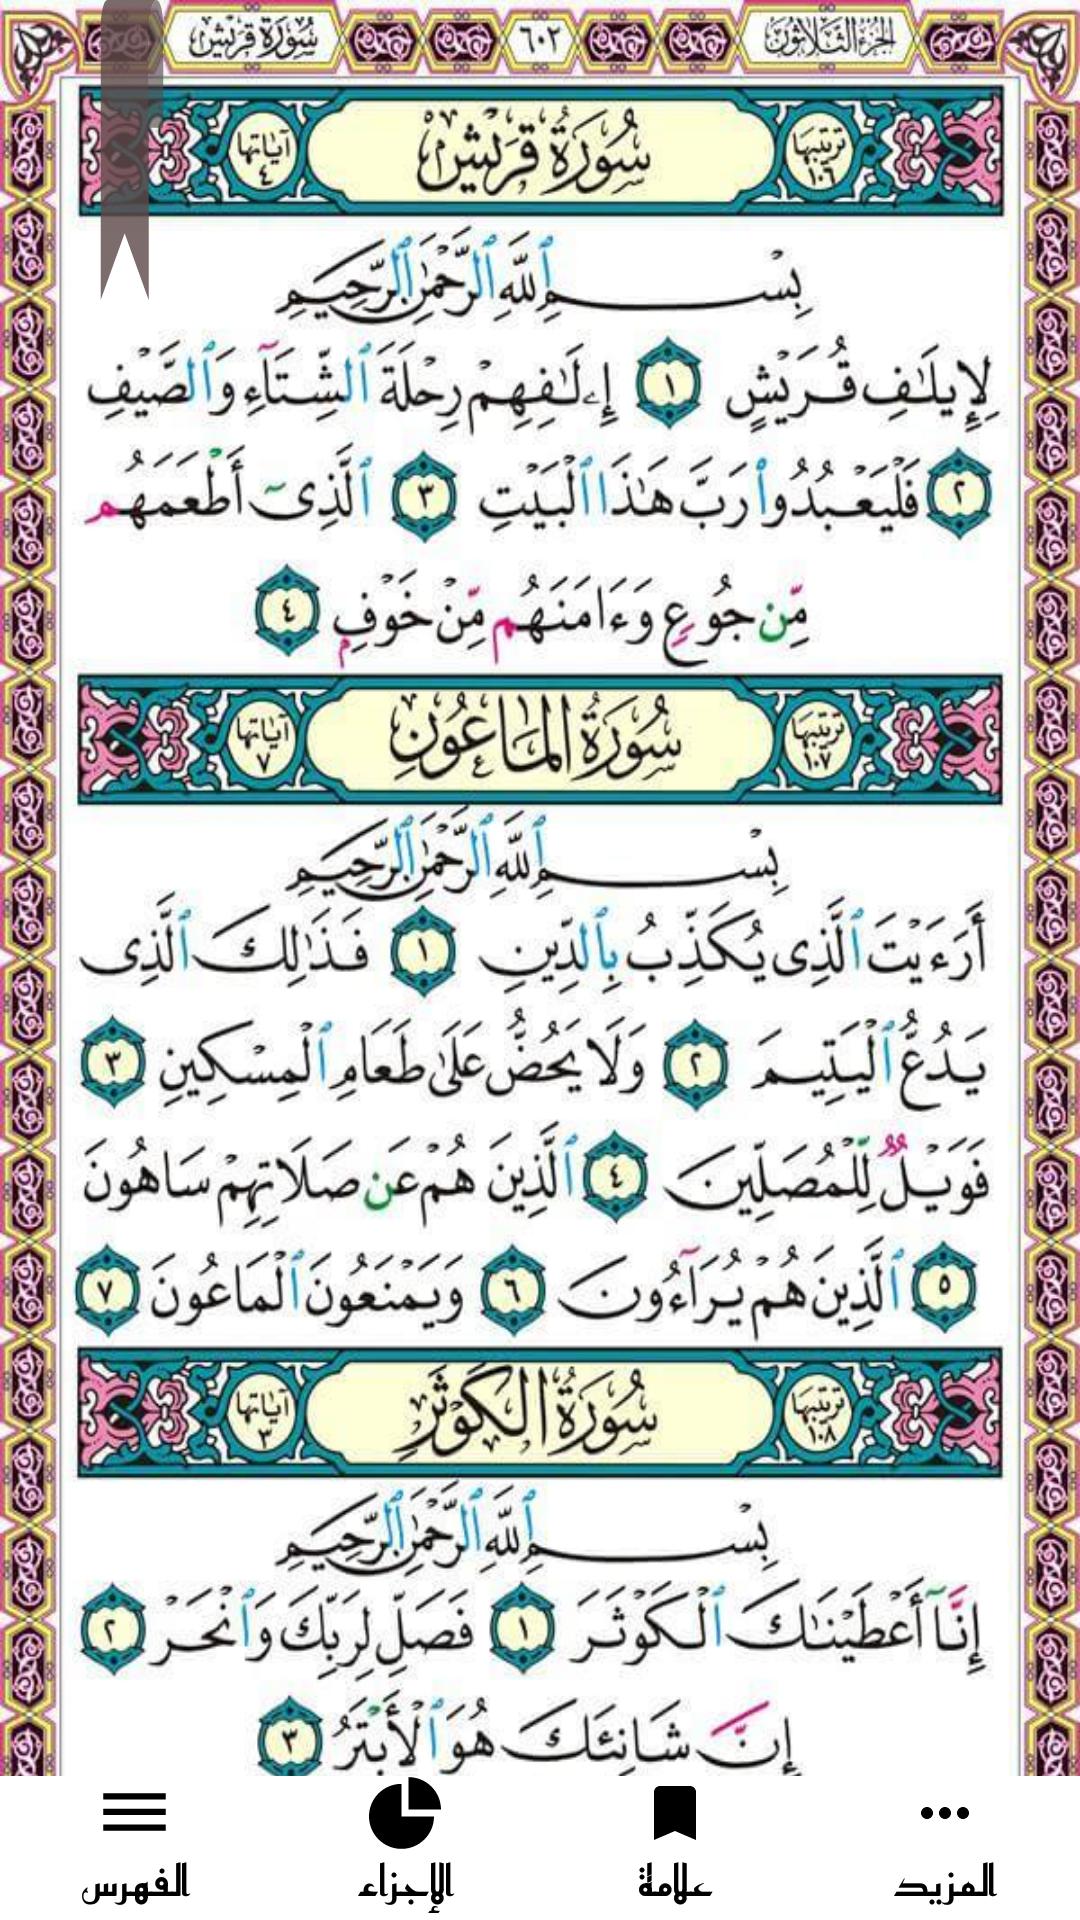 الجزء الثلاثون ٦٠٢ سورة قريش
ترتيبها ١٠٦ سورة قريش آياتها ٤
بِسْمِ ٱللَّهِ ٱلرَّحْمَٰنِ ٱلرَّحِيمِ
لِإِيلَٰفِ قُرَيْشٍ ١ إِۦلَٰفِهِمْ رِحْلَةَ ٱلشِّتَآءِ وَٱلصَّيْفِ
٢ فَلْيَعْبُدُوا۟ رَبَّ هَٰذَا ٱلْبَيْتِ ٣ ٱلَّذِىٓ أَطْعَمَهُم
مِّن جُوعٍ وَءَامَنَهُم مِّنْ خَوْفٍۭ ٤
ترتيبها ١٠٧ سُورَةُ المَاعُونِ آياتها ٧
بِسْمِ ٱللَّهِ ٱلرَّحْمَٰنِ ٱلرَّحِيمِ
أَرَءَيْتَ ٱلَّذِى يُكَذِّبُ بِٱلدِّينِ ١ فَذَٰلِكَ ٱلَّذِى
يَدُعُّ ٱلْيَتِيمَ ٢ وَلَا يَحُضُّ عَلَىٰ طَعَامِ ٱلْمِسْكِينِ ٣
فَوَيْلٌ لِّلْمُصَلِّينَ ٤ ٱلَّذِينَ هُمْ عَن صَلَاتِهِمْ سَاهُونَ
٥ ٱلَّذِينَ هُمْ يُرَآءُونَ ٦ وَيَمْنَعُونَ ٱلْمَاعُونَ ٧
ترتيبها ١٠٨ سُورَةُ الكَوْثَرِ آياتها ٣
بِسْمِ ٱللَّهِ ٱلرَّحْمَٰنِ ٱلرَّحِيمِ
إِنَّآ أَعْطَيْنَٰكَ ٱلْكَوْثَرَ ١ فَصَلِّ لِرَبِّكَ وَٱنْحَرْ ٢
إِنَّ شَانِئَكَ هُوَ ٱلْأَبْتَرُ ٣
المزيد علامة الإجزاء الفهرس